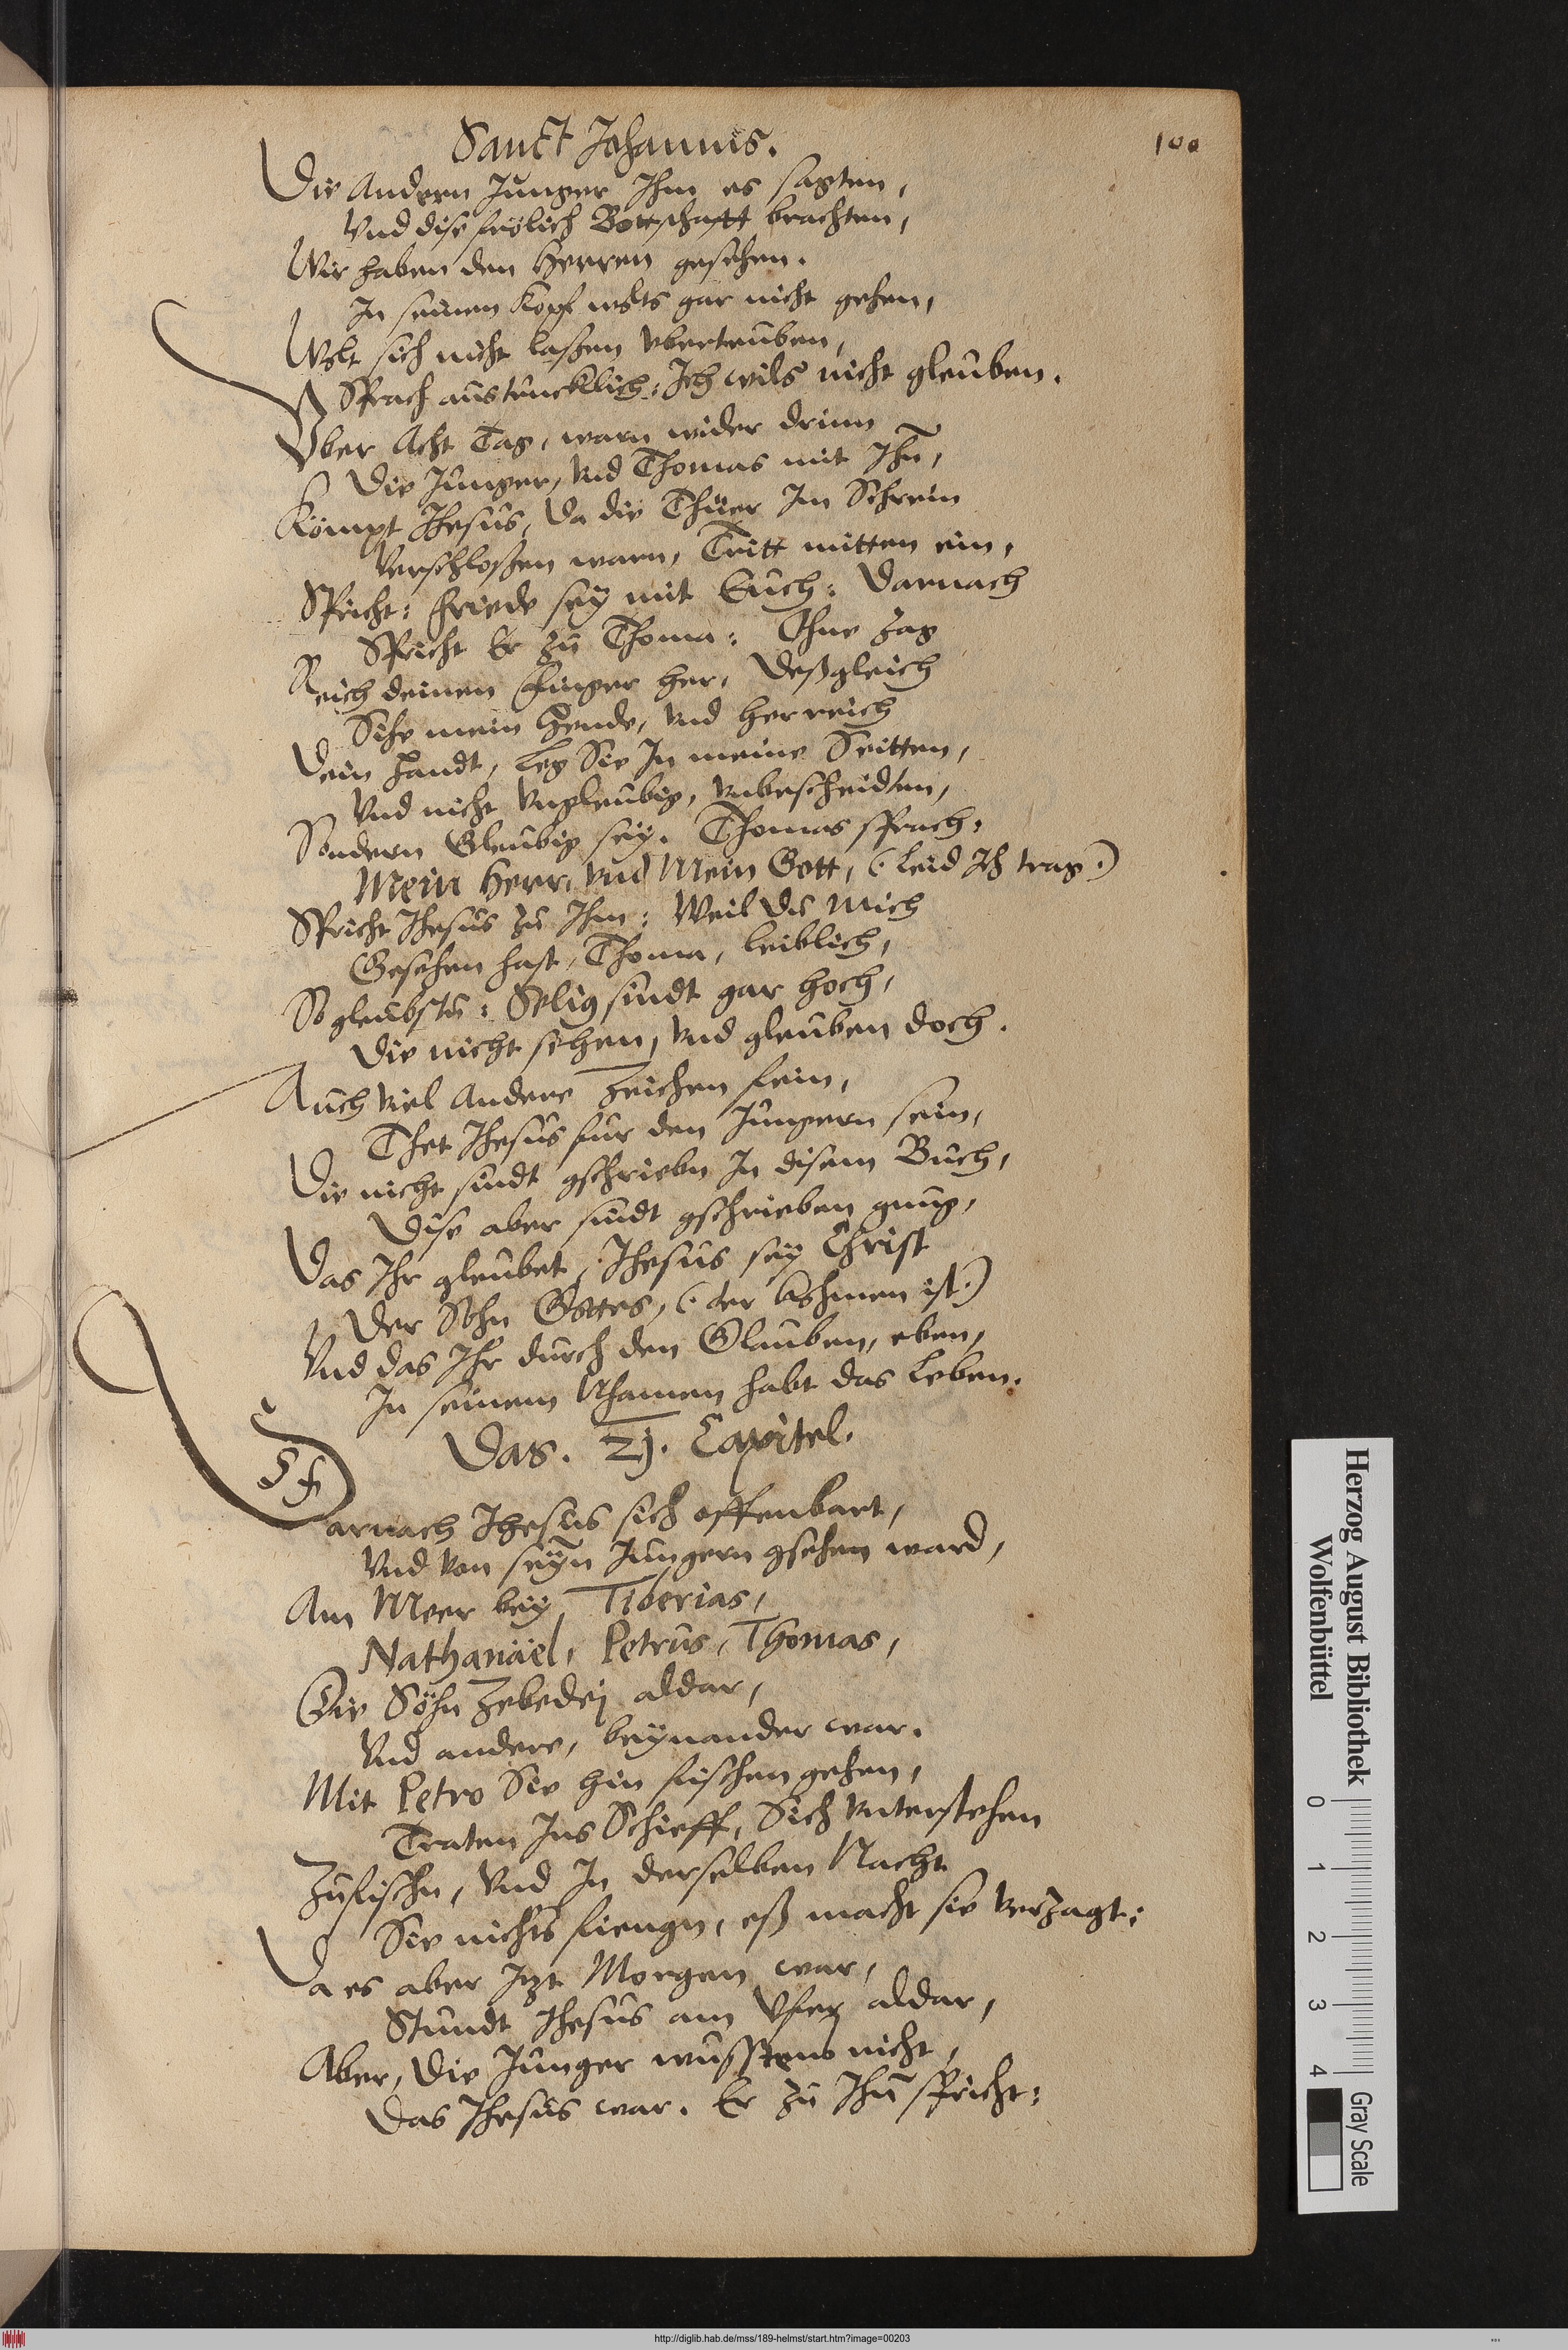 Sanct Johannis.
100
Die Andern Junger Ihm es sagten,
Vnd dise frölich Bottschafft brachten,
Wir haben den Herren gesehen.
In seinen Kopf wolts gar nicht gehen,
Wolt sich nicht laßen vberteuben,
Sprach austrucklich: Ich wils nicht gleuben.
Vber Acht Tag, warn wider drinn
Die Junger, vnd Thomas mit Ihn,
Kömpt Jhesus, da die Thüer Im Schrein
Verschloßen warn, Tritt mitten ein,
Spricht: Friede sey mit Euch: Darnach
Spricht Er zu Thoma: Ohne Zag
Reich deinen Finger her, deßgleich
Sihe mein Hende, vnd herreich
Dein Handt, leg Sie In meine Seitten,
Vnd nicht vngleubig, vnbescheidten,
Sondern Gleubig sey. Thomas sprach,
Mein Herr, vnd Mein Gott, (. leid Ich trag .)
Spricht Jhesus zu Ihm: Weil du Mich
Gesehen hast, Thoma, leiblich,
So gleubstu: Selig sindt gar hoch,
Die nicht sehen, vnd gleuben doch.
Auch viel Andere Zeichen fein,
Thet Jhesus fur den Jungern sein,
Die nicht sindt gschriebn In disem Buch,
Dise aber sindt gschrieben gnug,
Das Ihr gleubet, Jhesus sey Christ
Der Sohn Gottes, (. der kohmen ist .)
Vnd das Ihr durch den Glauben, eben,
In seinem Nhamen habt das Leben.
Das. 21. Capitel.
Darnach Jhesus sich offenbart,
Vnd von seyn Jungern gsehen ward,
Am Meer bey Tiberias,
Nathanäel, Petrus, Thomas,
Die Söhn Zebedej aldar,
Vnd andere, beynander war.
Mit Petro Sie hin fischen gehen,
Traten Ins Schieff, Sich vnterstehen
Zufischn, Vnd In derselben Nacht
Sie nichts fiengn, eß macht sie verzagt:
Da es aber Itzt Morgen war,
Stundt Jhesus am Vfer aldar,
Aber, die Junger wusstens nicht,
Das Jhesus war. Er zu Ihn spricht:
Herzog August Bibliothek
Wolfenbüttel
0 1 2 3 4
Gray Scale
http://diglib.hab.de/mss/189-helmst/start.htm?image=00203